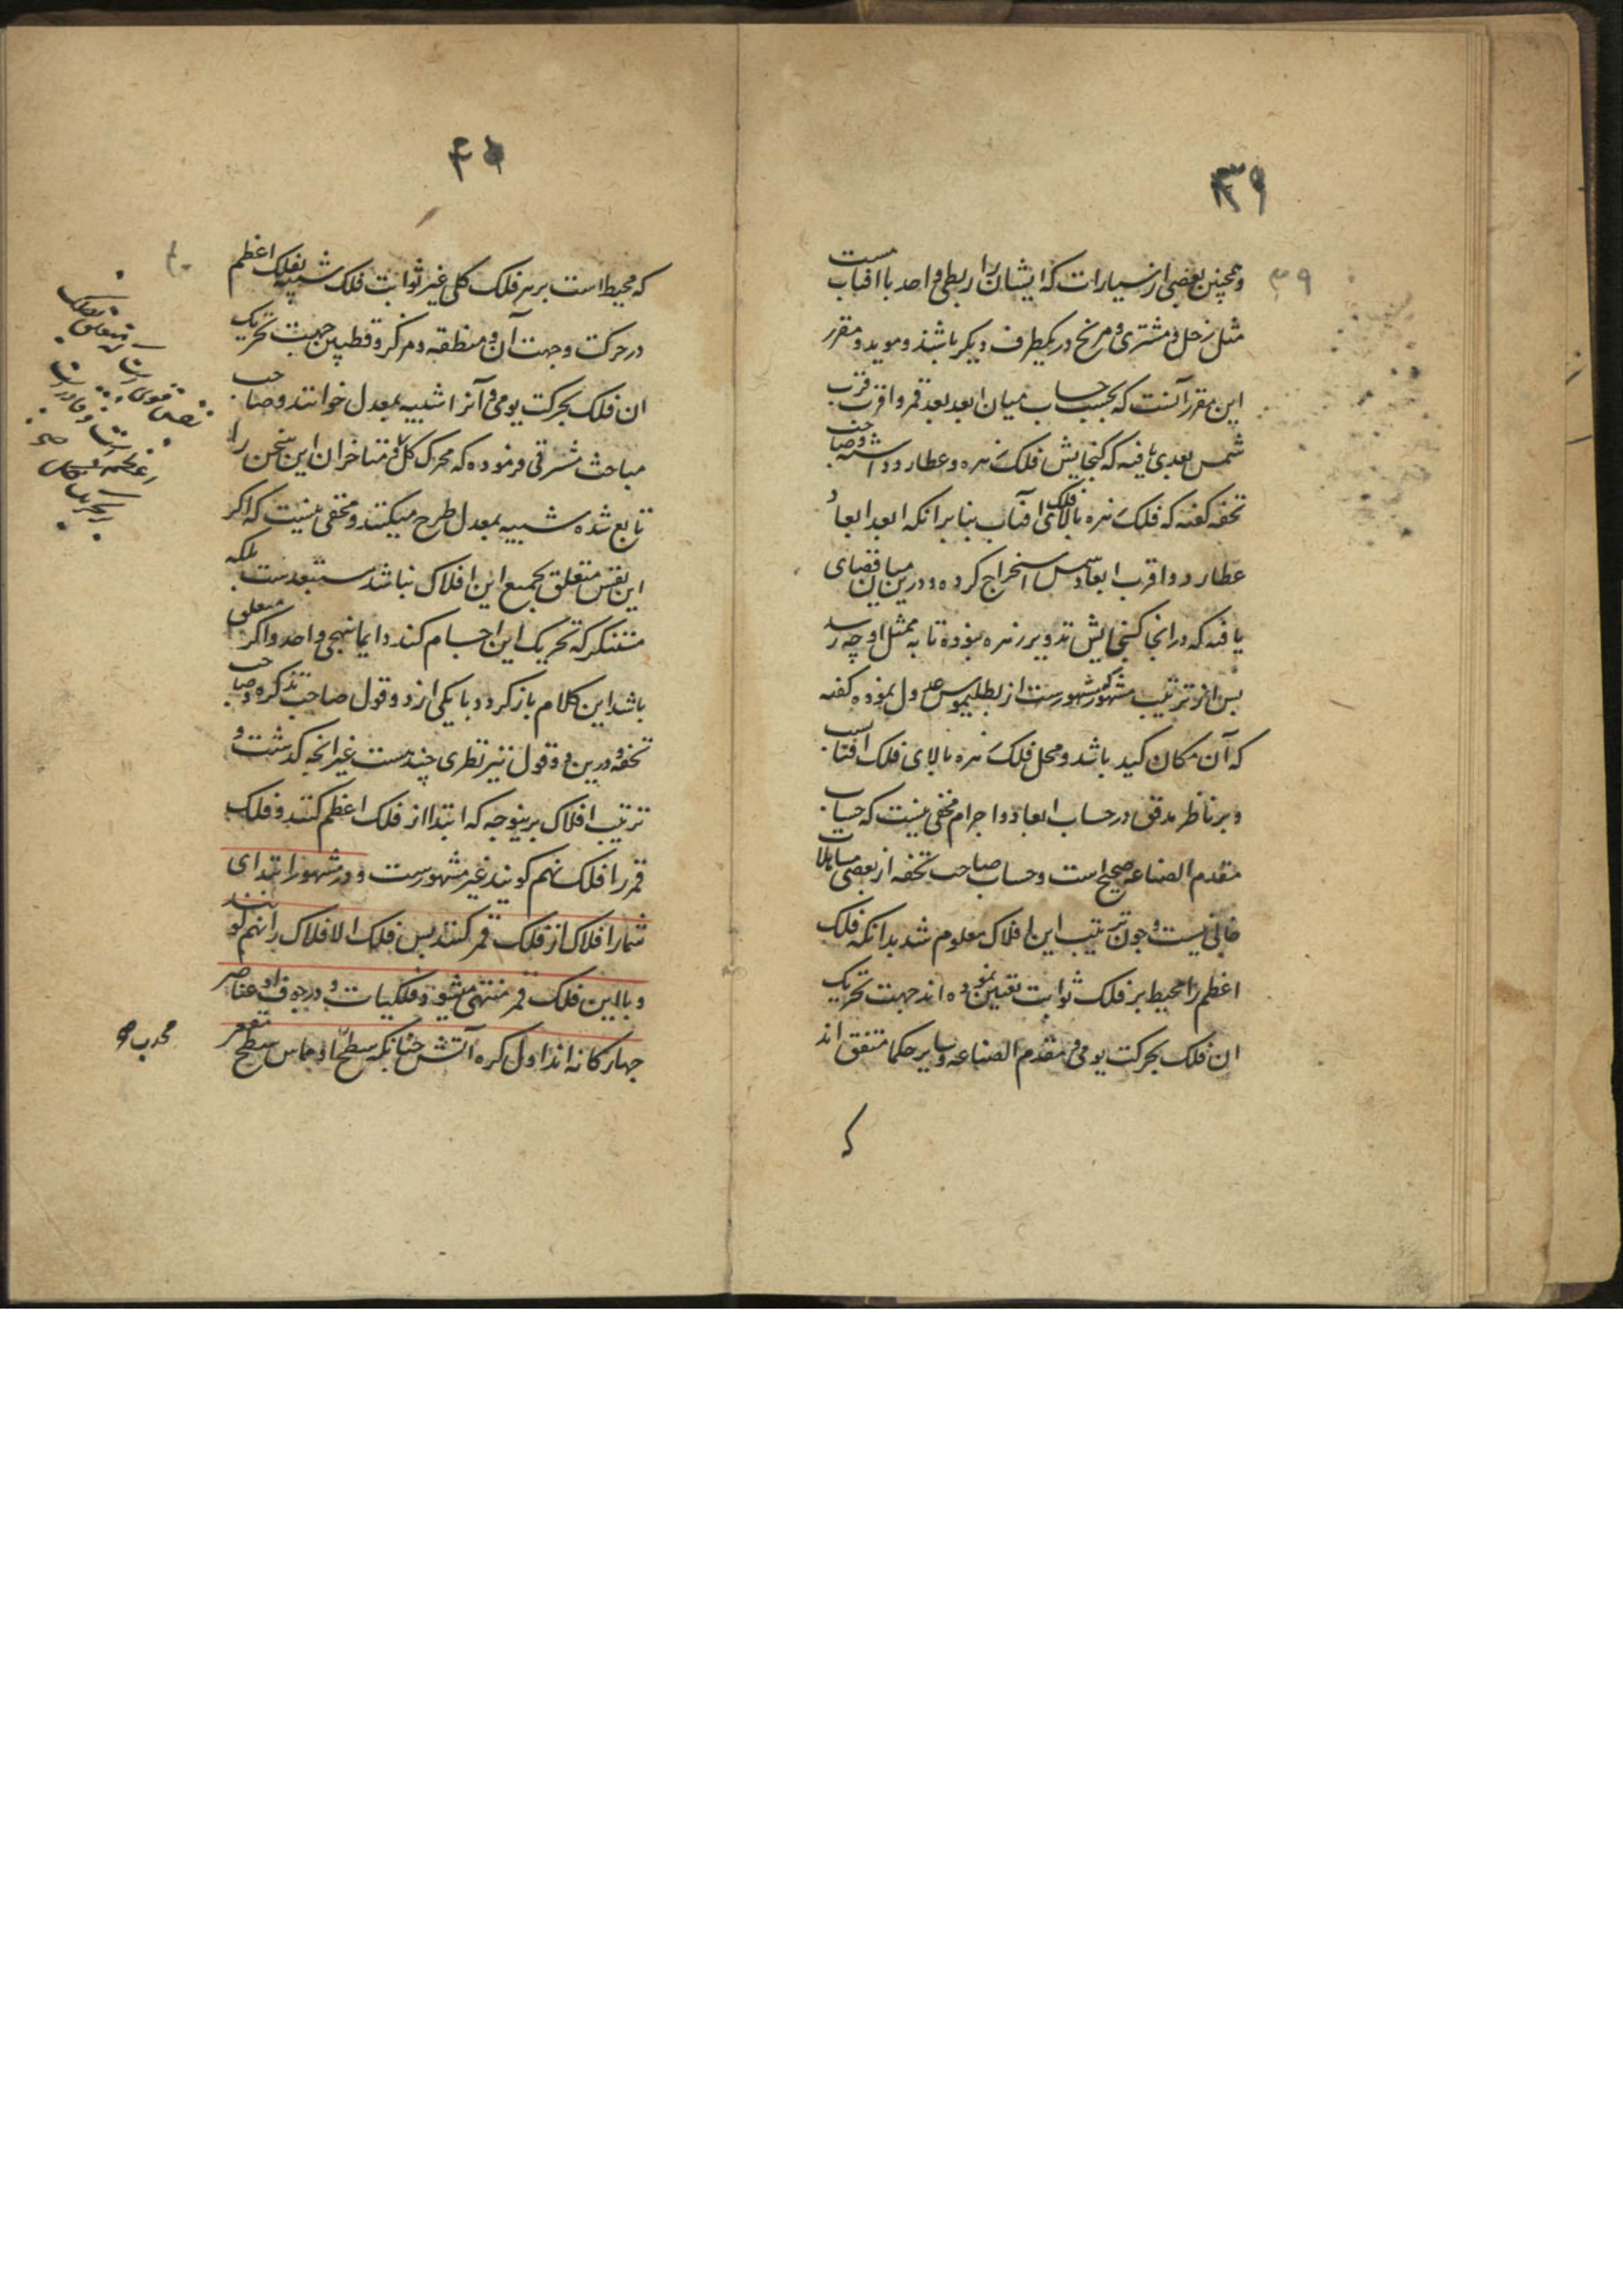 ۳۹
و همچنین بعضی از سیارات که ایشان را ربطی واحد با افتاب هست
مثل زحل و مشتری و مریخ در یکطرف دیکر باشند و موید و مقرر
این مقرر آنست که بحسب حساب میان ابعد بعد قمر و اقرب قرب
شمس بعدی یافته که کنجایش فلک زهره و عطارد داشته و صاحب
تحفه کفته که فلک زهره بالای فلک افتاب بنابر انکه ابعد ابعاد
عطارد و اقرب ابعاد شمس استخراج کرده و درین میان فضای
یافته که در انجا کنجایش تدویر زهره نبوده تا به ممثل او چه رسد
پس از ترتیب مشهور که مشهورست از بطلیموس عدول نموده کفته
که آن مکان کید باشد و محل فلک زهره بالای فلک افتاب است
و بر ناظر مدقق در حساب ابعاد و اجرام مخفی نیست که حساب
مقدم الصناعه صحیح است و حساب صاحب تحفه از بعضی مساهلات
خالی نیست و چون ترتیب این افلاک معلوم شد بدانکه فلک
اعظم را محیط بر فلک ثوابت تعیین نموده اند جهت تحریک
ان فلک بحرکت یومی و مقدم الصناعه و سایر حکما متفق اند
که
۴۰
که محیط است بر هر فلک کلی غیر ثوابت فلک شبیه بفلک اعظم
در حرکت و جهت آن و منطقه و مرکز و قطبین جهت تحریک
ان فلک بحرکت یومی و آنرا شبیه بمعدل خوانند و صاحب
مباحث مشرقی فرموده که محرک کل و متاخران این سخن را
تابع شده شبیه بمعدل طرح میکنند و مخفی نیست که اکر
این نفس متعلق بجمیع این افلاک نباشد مستبعدست بلکه
مستنکر که تحریک این اجسام کند دایما بنهجی واحد و اکر متعلق
باشد این کلام باز کردد با یکی از دو قول صاحب تذکره و صاحب
تحفه و درین دو قول نیز نظری چند هست غیر انچه کذشت و
ترتیب افلاک برینوجه که ابتدا از فلک اعظم کنند و فلک
قمر را فلک نهم کویند غیر مشهورست و در مشهور ابتدای
شمار افلاک از فلک قمر کنند پس فلک الافلاک را نهم کویند
و بالین فلک قمر منتهی میشود فلکیات و در جوف او عناصر
چهارکانه اند اول کره آتش چنانکه سطح او مماس سطح مقعر
محدب